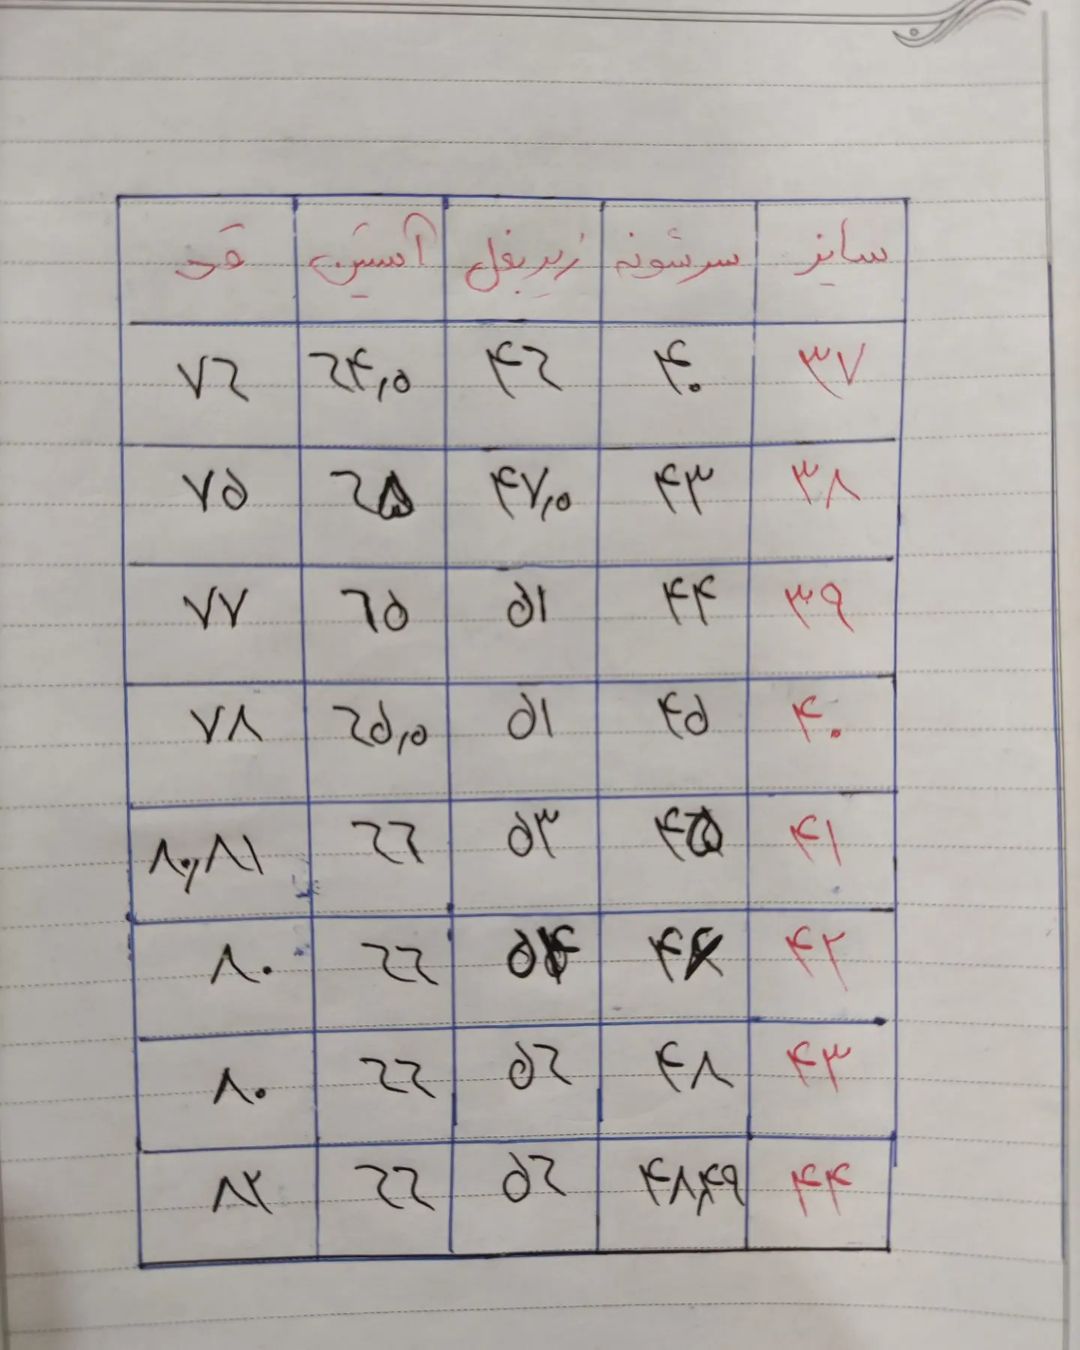 سایز سرشونه زیربغل آستین قد
۳۷ ۴۰ ۴۶ ۶۴٫۵ ۷۶
۳۸ ۴۳ ۴۷٫۵ ۶۵ ۷۵
۳۹ ۴۴ ۵۱ ۶۵ ۷۷
۴۰ ۴۵ ۵۱ ۶۵٫۵ ۷۸
۴۱ ۴۵ ۵۳ ۶۶ ۸۰,۸۱
۴۲ ۵۴ ۶۶ ۸۰
۴۳ ۴۸ ۵۶ ۶۶ ۸۰
۴۴ ۴۸,۴۹ ۵۶ ۶۶ ۸۲